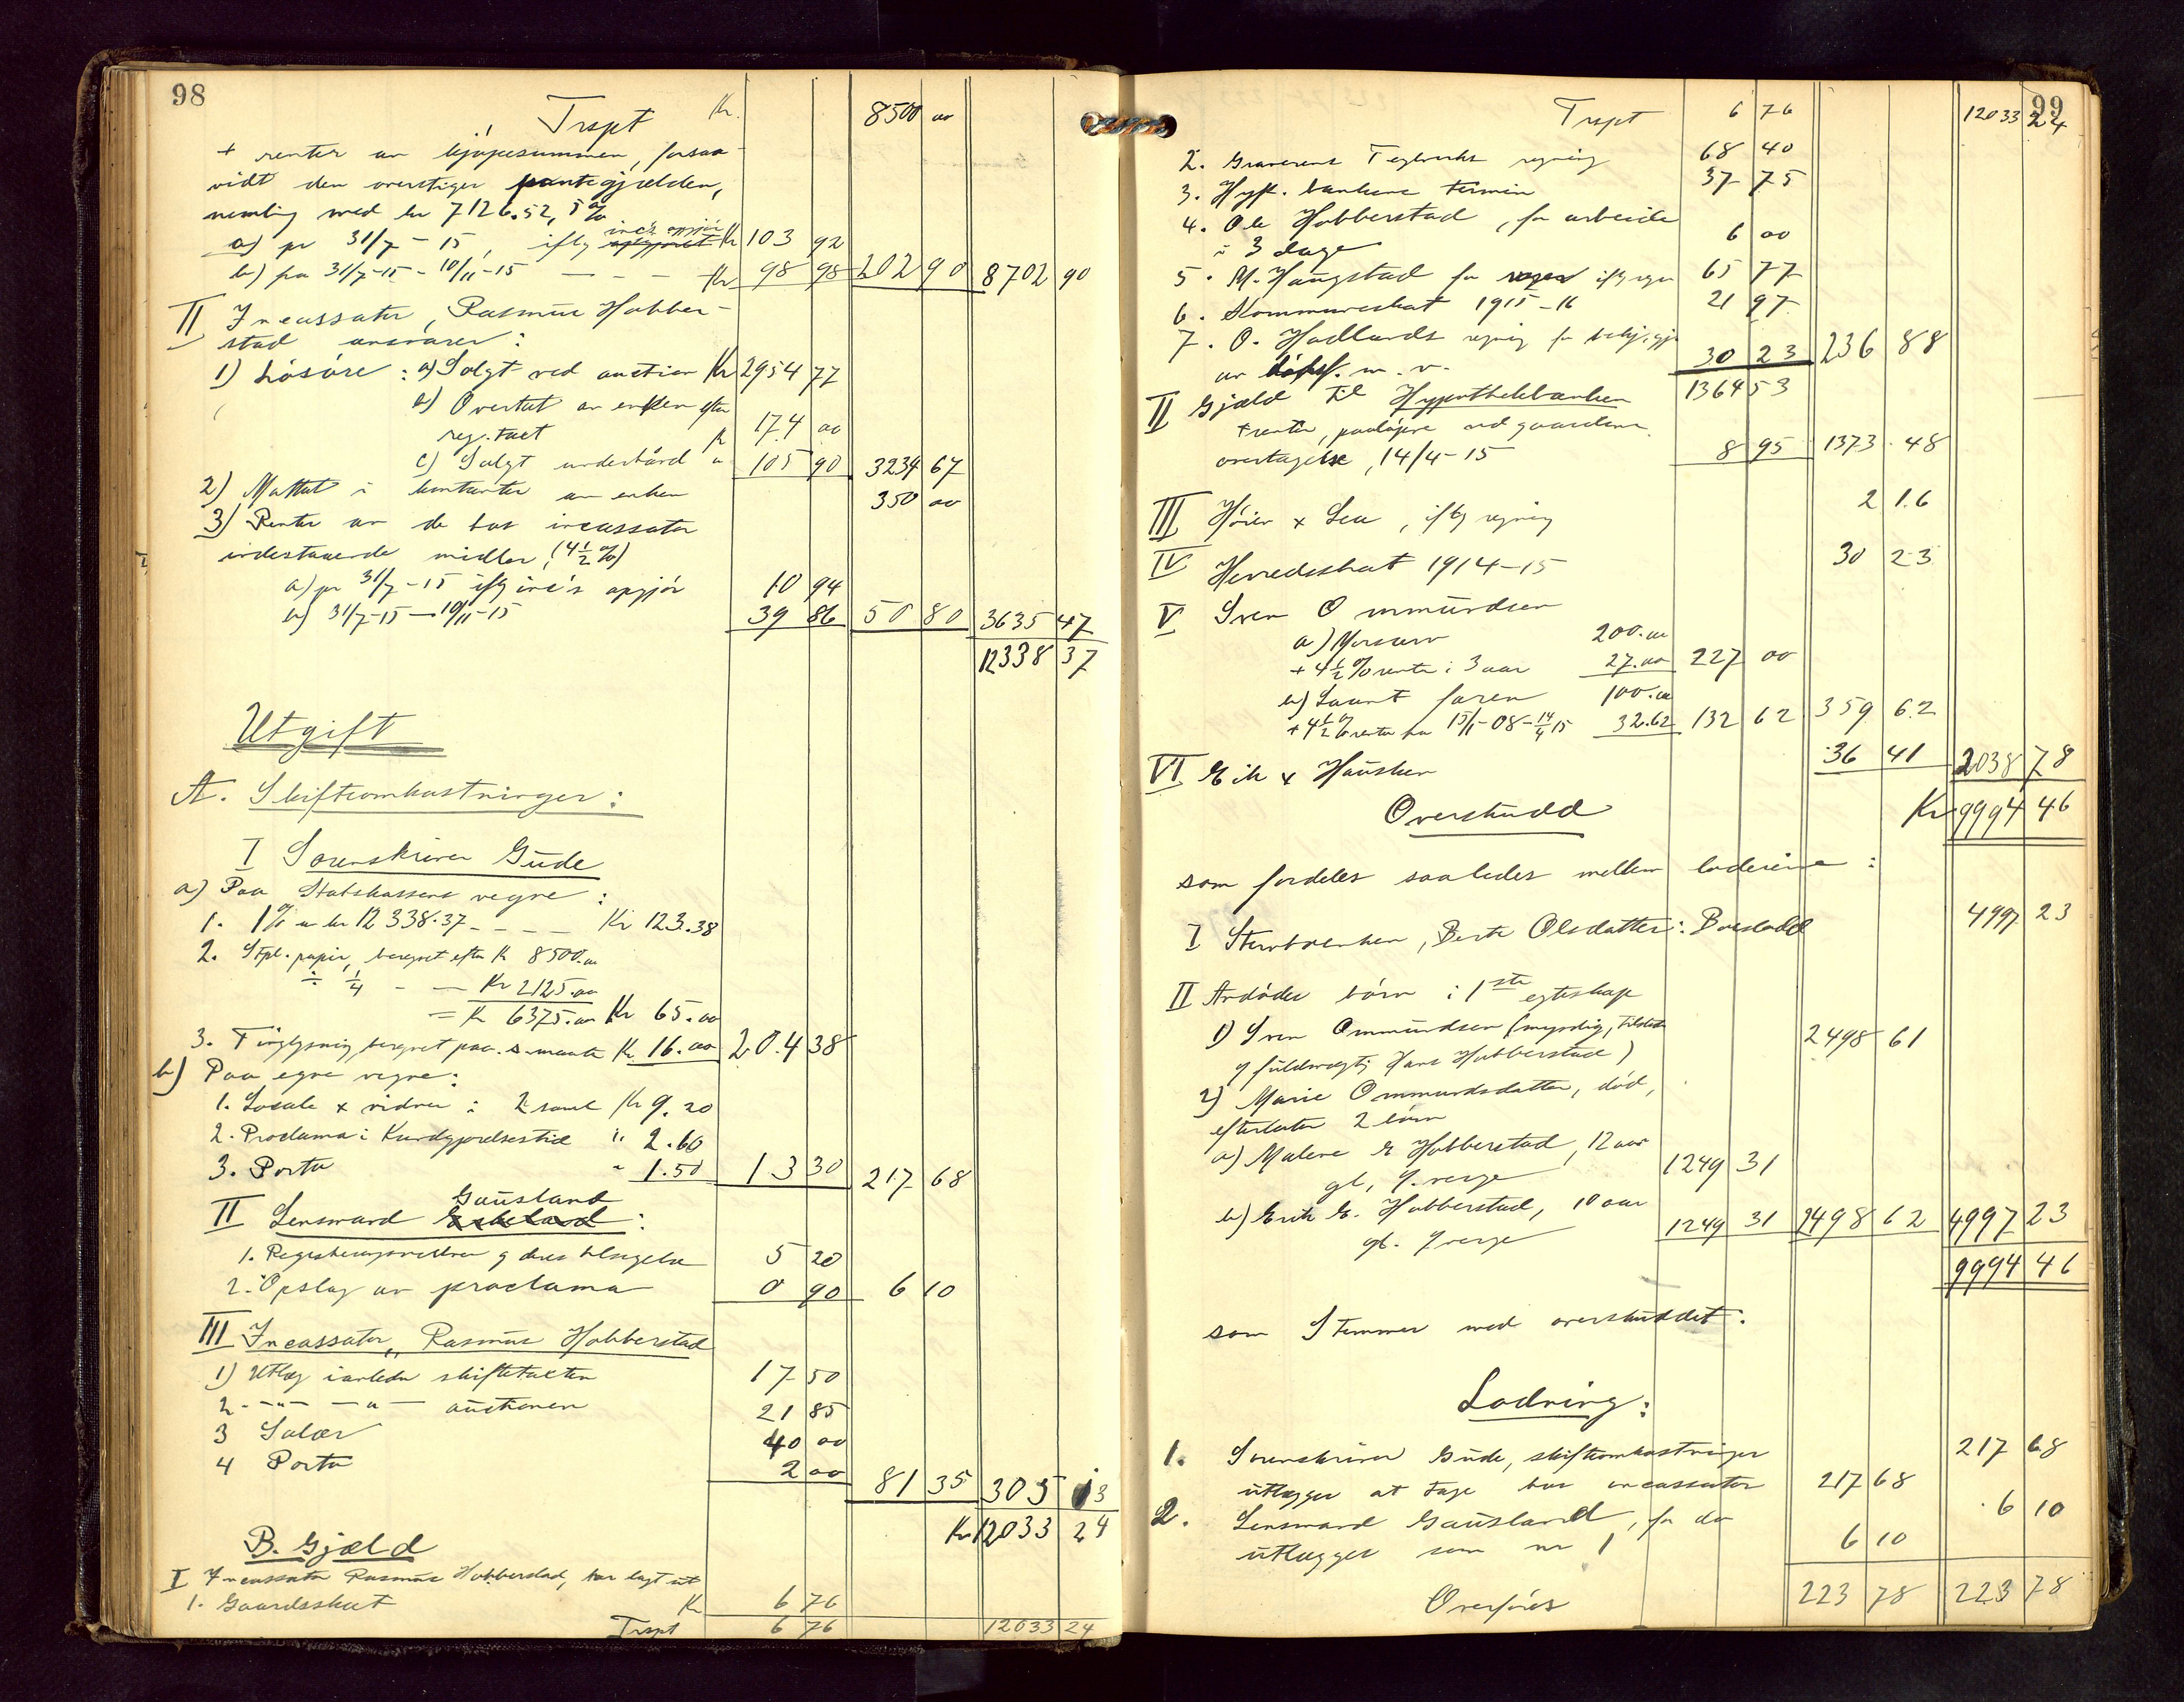 98
Trspt Kr. 8500 00
+ renter av kjøpesummen, forsaa-
vidt den overstiger pantegjælden,
nemlig med kr 7126.52, 5%
a) pr 31/7-15, iflg inc's opgjør Kr 103 92
b) fra 31/7-15 - 10/11-15 - - - Kr 98 98 202 90 8702 90
II Incassator, Rasmus Hobber-
stad ansvarer:
1) Løsøre: a) Solgt ved auction Kr 2954 77
b) Overtat av enken efter
reg. taxt k 174 00
c) Solgt underhånd " 105 90 3234 67
2) Mottat i kontanter av enken 350 00
3) Renter av de hos incassator
indestaaende midler, (4 1/2 %)
a) pr 31/7-15 iflg inc's opgjør 10 94
b) 31/7-15 - 10/11-15 39 86 50 80 3635 47
12338 37
Utgift
A. Skifteomkostninger:
I Sorenskriver Gude
a) Paa Statskassens vegne:
1. 1% av kr 12338.37 - - - - Kr 123.38
2. Stpl. papir, beregnet efter K 8500.00
÷ 1/4 - - Kr 2125.00
= K 6375.00 Kr 65.00
3. Tinglysning beregnet paa s. maate Kr. 16.00 204 38
b) Paa egne vegne:
1. Locale & vidner i 2 saml Kr 9.20
2. Proclama i Kundgjørelsestid " 2.60
3. Porto " 1.50 13 30 217 68
Gausland
II Lensmand :
1. Registeringsvidner og deres tilsigelse 5 20
2. Opslag av proclama 0 90 6 10
III Incassator, Rasmus Hobberstad
1) Utlæg i anledn skiftetaxten 17 50
2. -"- -"- auctionen 21 85
3 Salær 40 00
4 Porto 2 00
81 35 305 13
Kr 12033 24
B. Gjæld
I Incassator Rasmus Hobberstad, har lagt ut
1. Gaardsskat Kr 6 76
Trspt 6 76 12033 24
99
Trspt 6 76 12033 24
2. Graverens Teglverks regning 68 40
3. Hyp. bankens termin 37 75
4. Ole Hobberstad, for arbeide
i 3 dage 6 00
5. M. Haugstad for iflg regn 65 77
6. Kommuneskat 1915-16 21 97
7. O. Hadlands regning for
av m. v. 30 23 236 88
II Gjæld til Hypothekbanken 1364 53
+ renter, paaløpne ved gaardens
overtagelse, 14/4-15 8 95 1373 48
III Høier & Lea, iflg regning 2 16
IV Herredsskat 1914-15 30 23
V Sven Ommundsen
a) Morsarv 200.00
+ 4 1/2 % rente i 3 aar 27.00 227 00
b) Laant faren 100.00
+ 4 1/2 % rente fra 15/1-08 - 14/4 15 32.62 132 62 359 62
VI Eik & Hausken 36 41 2038 78
Overskudd Kr 9994 46
som fordeles saaledes mellem loderne:
I Stervboenken, Berte Olsdatter: Boeslodd 4997 23
II Avdødes børn i 1ste egteskap
1) Sven Ommundsen (myndig, tilstede
v fuldmægtig Hans Hobberstad) 2498 61
2) Marie Ommundsdatter, død,
efterlater 2 børn
a) Malene E Hobberstad, 12 aar
gl, f. verge 1249 31
b) Erik E. Hobberstad, 10 aar
gl. f verge 1249 31 2498 62 4997 23
9994 46
som Stemmer med overskuddet.
Lodning:
1. Sorenskriver Gude, skifteomkostninger 217 68
utlægges at tage hos incassator 217 68
2. Lensmand Gausland, for do 6 10
utlægges som nr 1 6 10
Overføres 223 78 223 78